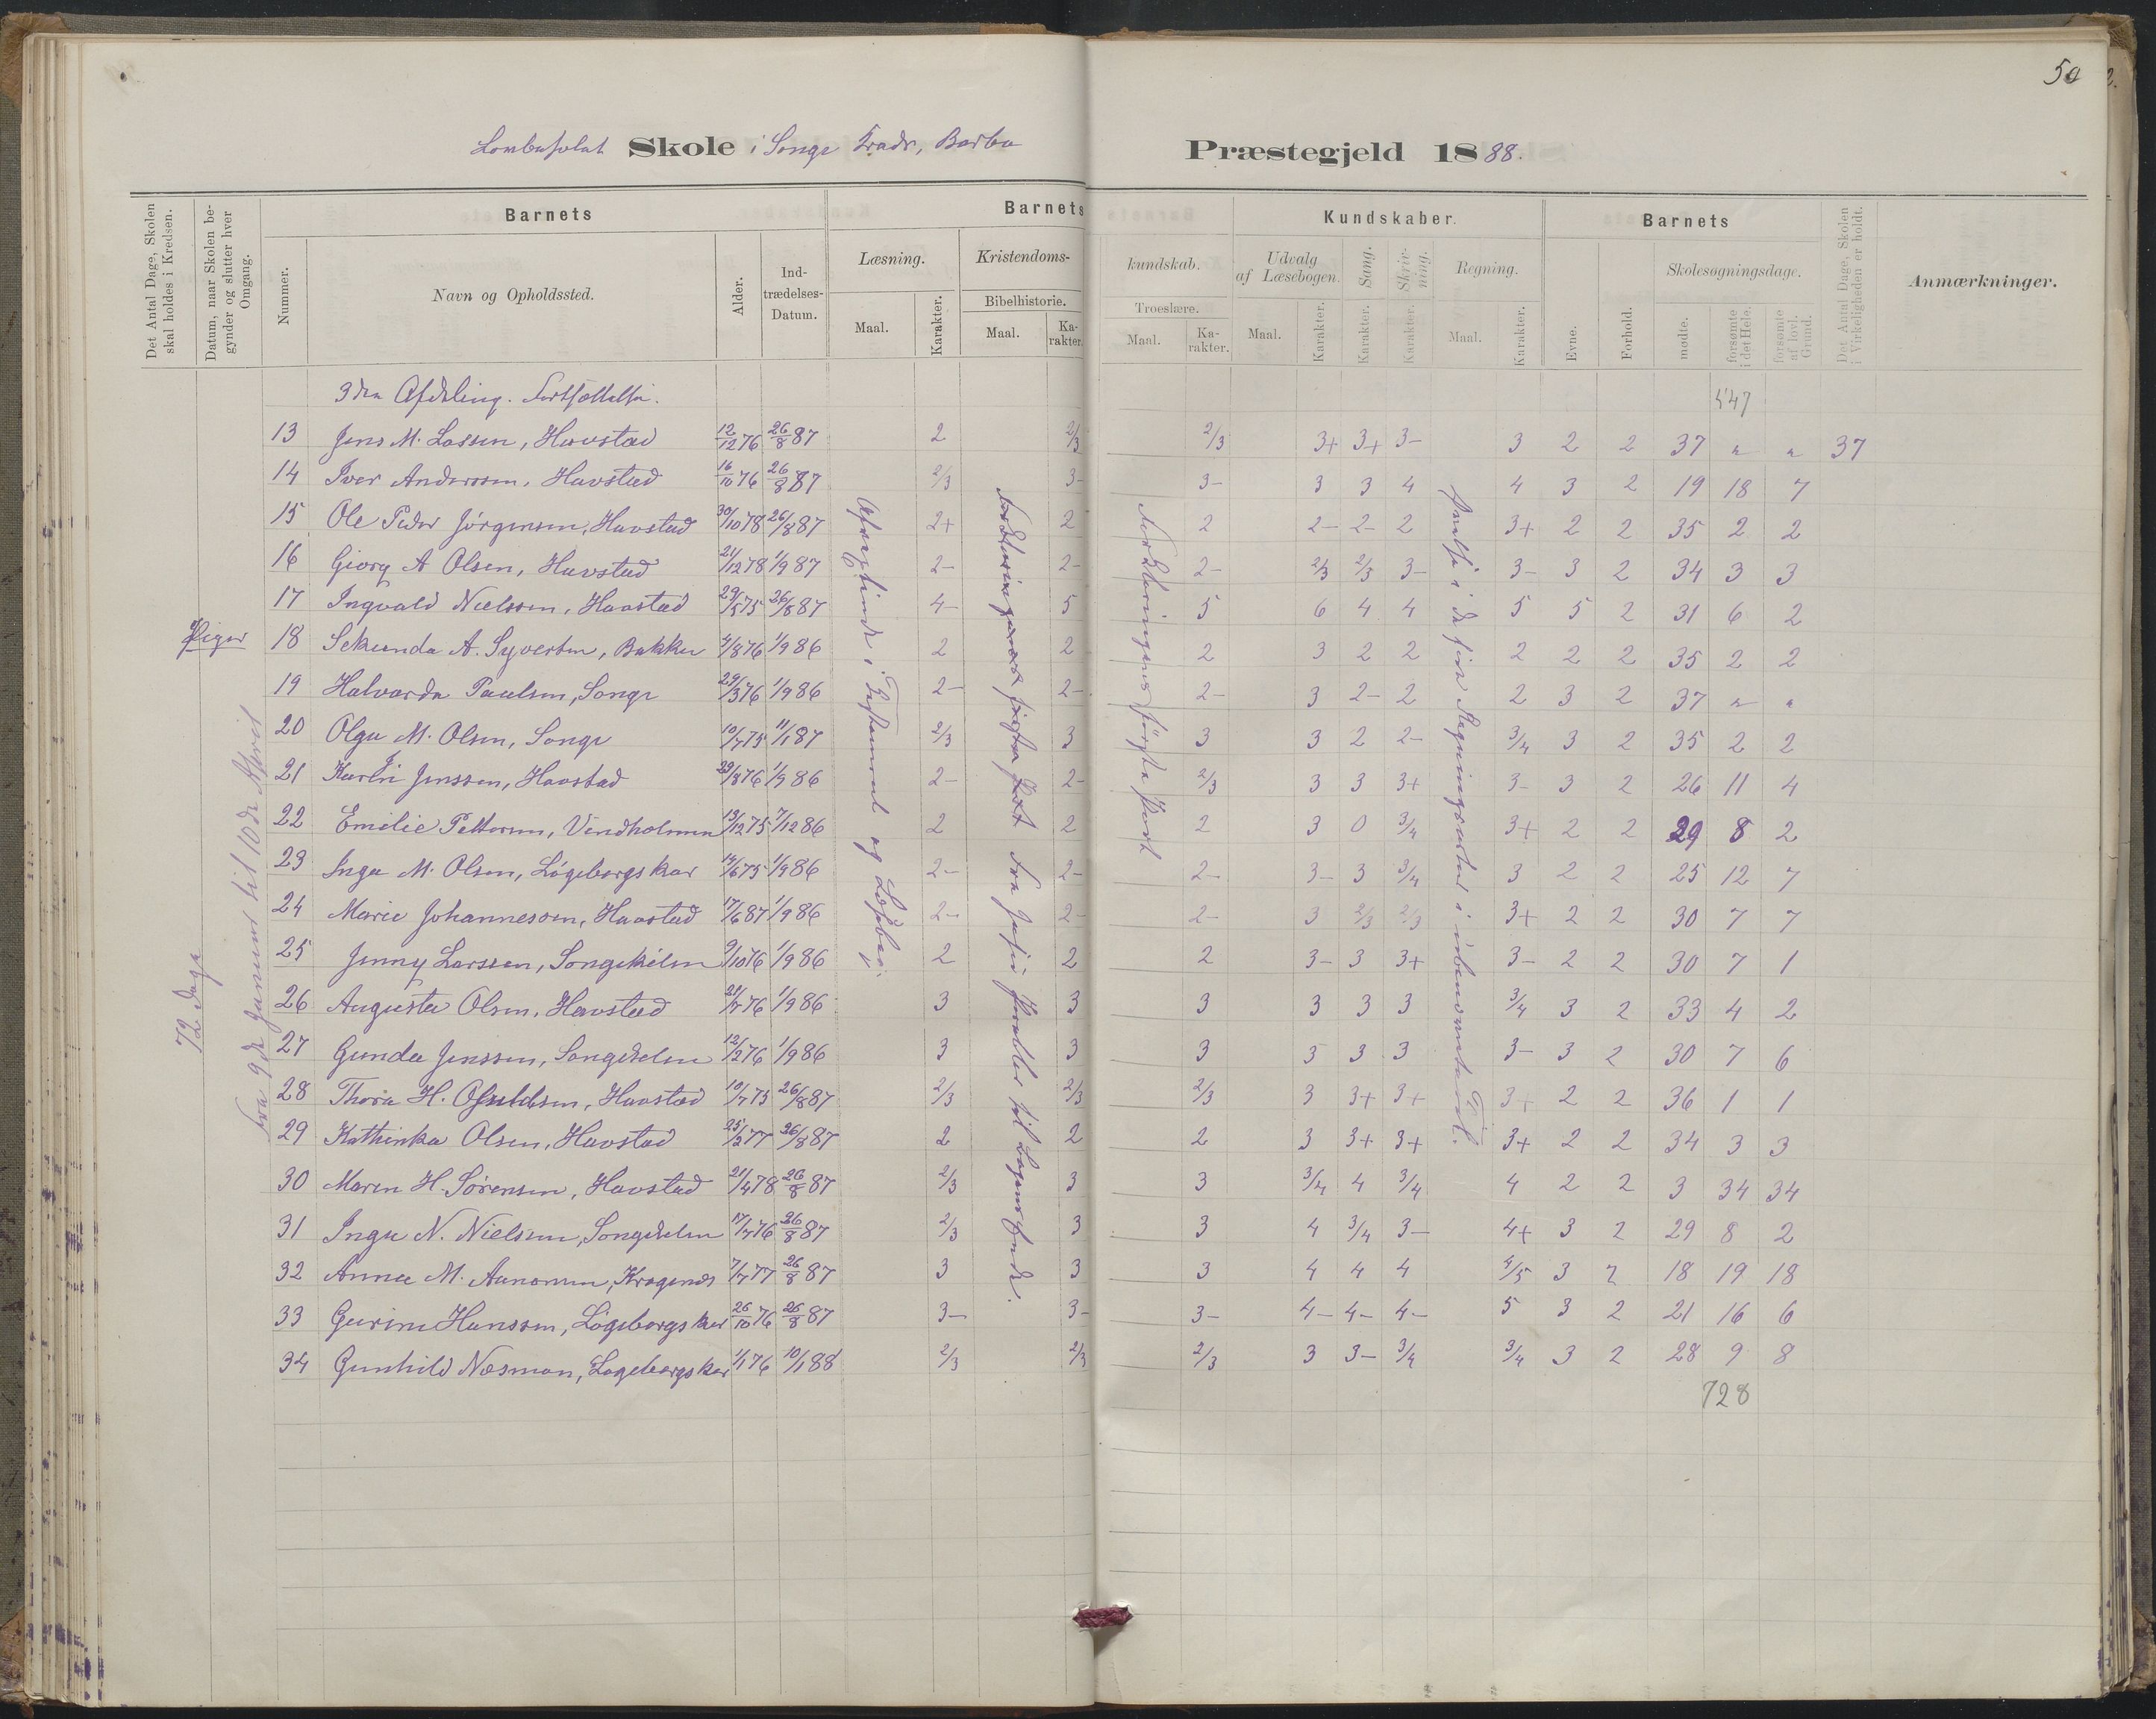 50
Skole i Songe Krads, Barbo Præstegjeld 1888.
Det Antal Dage, Skolen skal holdes i Kredsen.
Datum, naar Skolen begynder og slutter hver Omgang.
Barnets
Nummer.
Navn og Opholdssted.
Alder.
Indtrædelses-Datum.
Barnets Kundskaber.
Læsning.
Maal. Karakter.
Kristendoms-kundskab.
Bibelhistorie.
Maal. Karakter.
Troeslære.
Maal. Karakter.
Udvalg af Læsebogen.
Maal. Karakter.
Sang.
Karakter.
Skrivning.
Karakter.
Regning.
Maal. Karakter.
Barnets
Evne.
Forhold.
Skolesøgningsdage.
mødte.
forsømte i det Hele.
forsømte af lovl. Grund.
Det Antal Dage, Skolen i Virkeligheden er holdt.
Anmærkninger.
72 Dage
fra 9de Januar til 10de April
3die Afdeling. Fortsættelse.
547
13 Jens M. Lassen, Havstad 12/12 76 26/8 87 2 2/3 2/3 3+ 3+ 3- 3 2 2 37 " " 37
14 Iver Anderssen, Havstad 16/10 76 26/8 87 2/3 3- 3- 3 3 4 4 3 2 19 18 7
15 Ole Peder Jörgensen, Havstad 30/10 78 26/8 87 2+ 2 2 2- 2- 2 3+ 2 2 35 2 2
16 Giorg A Olsen, Havstad 21/12 78 1/9 87 2- 2- 2- 2/3 2/3 3- 3- 3 2 34 3 3
17 Ingvald Nielssen, Havstad 29/5 75 26/8 87 4- 5 5 6 4 4 5 5 2 31 6 2
Piger
18 Sekunda A. Syvertsen, Bakken 4/8 76 1/9 86 2 2 2 3 2 2 2 2 2 35 2 2
19 Halvarda Paulsen, Songe 29/3 76 1/9 86 2- 2- 2- 3 2- 2 2 3 2 37 " "
20 Olga M. Olsen, Songe 10/7 75 11/1 87 2/3 3 3 3 2 2- 3/4 3 2 35 2 2
21 Karen J Jenssen, Havstad 23/8 76 1/9 86 2- 2- 2/3 3 3 3+ 3- 3 2 26 11 4
22 Emilie Pettersen, Vindholmen 13/12 75 7/12 86 2 2 2 3 0 3/4 3+ 2 2 29 8 2
23 Inga M. Olsen, Lögeborgskar 14/6 75 1/9 86 2- 2- 2- 3- 3 3/4 3 2 2 25 12 7
24 Marie Johannesen, Havstad 17/6 87 1/9 86 2- 2- 2- 3 2/3 2/3 3+ 2 2 30 7 7
25 Jenny Larssen, Songekilen 9/10 76 1/9 86 2 2 2 3- 3 3+ 3- 2 2 30 7 1
26 Augusta Olsen, Havstad 21/7 76 1/9 86 3 3 3 3 3 3 3/4 3 2 33 4 2
27 Gunda Jenssen, Songekilen 12/2 76 1/9 86 3 3 3 3 3 3 3- 3 2 30 7 6
28 Thora H. Osuldsen, Havstad 10/7 75 26/8 87 2/3 2/3 2/3 3 3+ 3+ 3+ 2 2 36 1 1
29 Kathinka Olsen, Havstad 25/2 77 26/8 87 2 2 2 3 3+ 3+ 3+ 2 2 34 3 3
30 Maren H. Sörensen, Havstad 21/4 78 26/8 87 2/3 3 3 3/4 4 3/4 4 2 2 3 34 34
31 Inga N. Nielssen, Songekilen 17/7 76 26/8 87 2/3 3 3 4 3/4 3- 4+ 3 2 29 8 2
32 Anna M. Aanonsen, Kragenes 7/7 77 26/8 87 3 3 3 4 4 4 4/5 3 2 18 19 18
33 Gurine Hanssen, Lögeborgskar 26/10 76 26/8 87 3- 3- 3- 4- 4- 4- 5 3 2 21 16 6
34 Gunhild Næsman, Lögeborgskar 1/1 76 10/1 88 2/3 2/3 2/3 3 3- 3/4 3/4 3 2 28 9 8
728
i Testament og Læsebog.
Forklaringens første Part
i de fire Regningsarter i ubenævnte Tal.